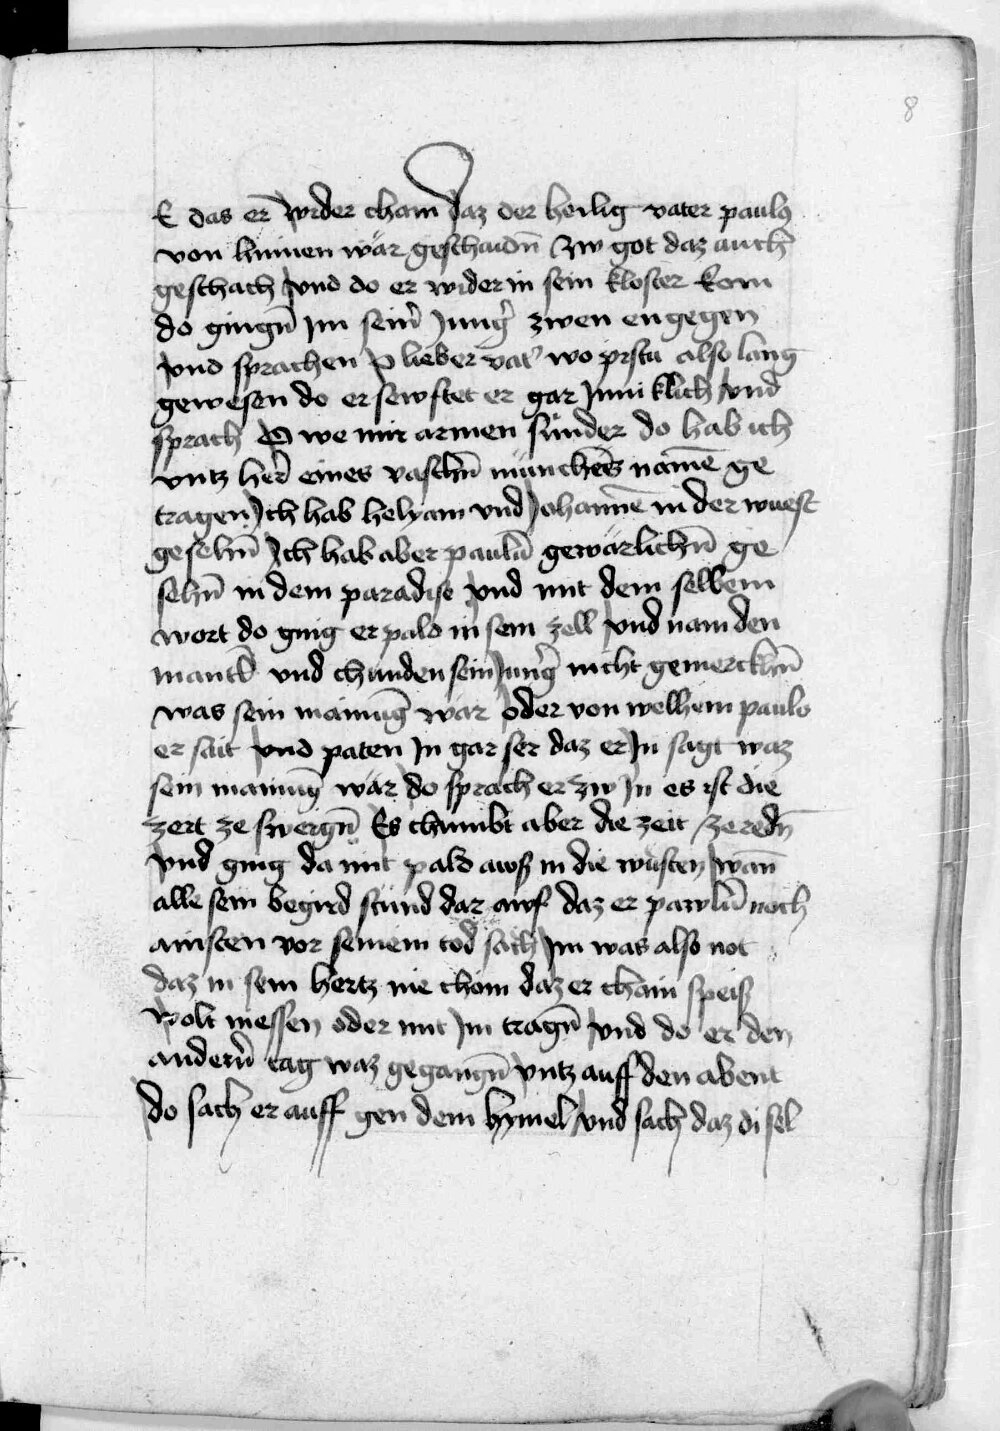 8
E das er̄ wider cham daz der heilig vater paulꝰ
von hinnen wär geschaidn̄ zw got daz auch
geschach vnd do er wider in sein kloster kom
do gingn̄ im sein̄ Jung̉ zwen engegen
vnd sprachen O lieber vat̉ wo pistu also lang
gewesen do ersewftet er gar Jnniklich vnd
sprach O we mir armen sünder do hab ich
vntz her̄ eines valschn̄ münches name ge
tragen Jch hab helyam vnd Johannē in der wuest
gesehn̄ Jch hab aber paulū gewärlichn̄ ge
sehn̄ in dem paradise vnd mit dem selbem
wort do ging er pald in sein zell vnd nam den
mantl vnd chunden sein Jung̉ nicht gemerckhn̄
was sein mainūg wär oder von welhem paulo
er sait vnd paten Jn gar ser daz er Jn sagt waz
sein mainūg wär do sprach er zw Jn es ist die
zeit ze sweign̄ Es chumbt aber die zeit ze redn̄
vnd ging da mit pald awß in die wüsten wan̄
alle sein begird stund dar awf daz er pawlū noch
ainsten vor seinem tod säch Jm was also not
daz in sein hertz nie chom daz er chain speiß
wolt niessen oder mit Jm tragn̄ vnd do er den
andern̄ tag waz gegangn̄ vntz auff den abent
do sach er auff gen dem hymel vnd sach daz di sel